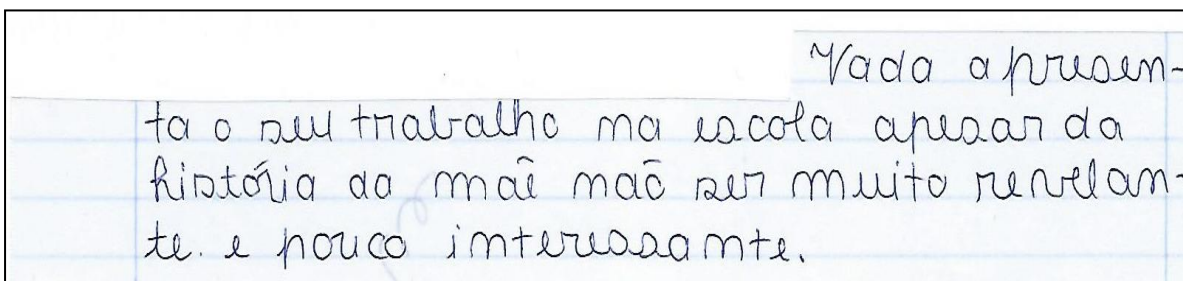 Vada apresen-
ta o seu trabalho na escola apesar da
história da mãe não ser muito revelan-
te. e pouco interessante.